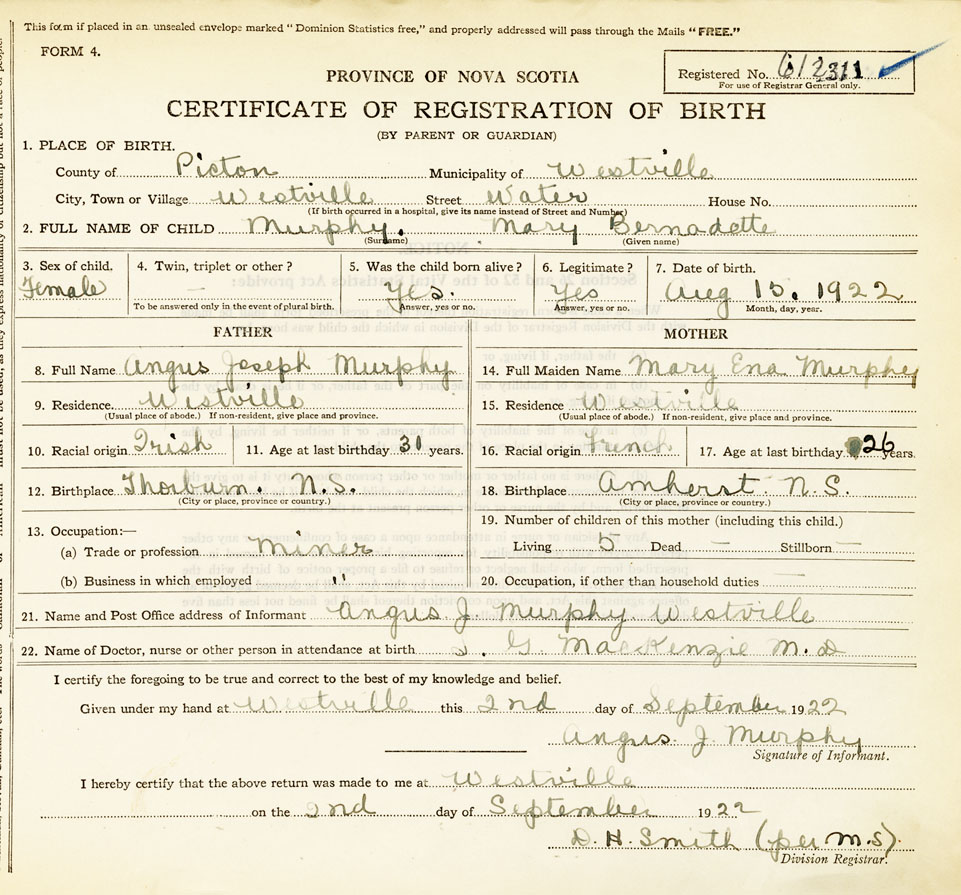 This form if placed in an unsealed envelope marked "Dominion Statistics free," and properly addressed will pass through the Mails "FREE."
FORM 4.
PROVINCE OF NOVA SCOTIA
Registered No. 612311
For use of Registrar General only.
CERTIFICATE OF REGISTRATION OF BIRTH
(BY PARENT OR GUARDIAN)
1. PLACE OF BIRTH.
County of Picton Municipality of Westville
City, Town or Village Westville Street Water House No.
(If birth occurred in a hospital, give its name instead of Street and Number)
2. FULL NAME OF CHILD Murphy. Mary Bernadette
(Surname) (Given name)
3. Sex of child. 4. Twin, triplet or other? 5. Was the child born alive? 6. Legitimate? 7. Date of birth.
Female — Yes. Yes Aug 15. 1922
To be answered only in the event of plural birth. Answer, yes or no. Answer, yes or no. Month, day, year.
FATHER MOTHER
8. Full Name Angus Joseph Murphy 14. Full Maiden Name Mary Ena Murphy
9. Residence. Westville 15. Residence Westville
(Usual place of abode.) If non-resident, give place and province. (Usual place of abode.) If non-resident, give place and province.
10. Racial origin Irish 11. Age at last birthday 31 years. 16. Racial origin French 17. Age at last birthday 26 years.
12. Birthplace Thorburn. N.S. 18. Birthplace Amherst N.S.
(City or place, province or country.) (City or place, province or country.)
13. Occupation:— 19. Number of children of this mother (including this child.)
(a) Trade or profession Miner Living 5 Dead — Stillborn —
(b) Business in which employed " 20. Occupation, if other than household duties —
21. Name and Post Office address of Informant Angus J Murphy Westville
22. Name of Doctor, nurse or other person in attendance at birth J. G. MacKenzie M.D
I certify the foregoing to be true and correct to the best of my knowledge and belief.
Given under my hand at Westville this 2nd day of September 1922
Angus. J Murphy
Signature of Informant.
I hereby certify that the above return was made to me at Westville
on the 2nd day of September 1922
D. H. Smith (per M.S).
Division Registrar.